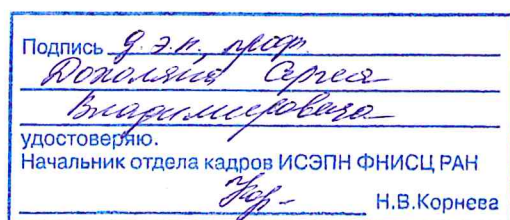 Подпись д.э.н., проф.
Дохоляна Сергея
Владимировича
удостоверяю.
Начальник отдела кадров ИСЭПН ФНИСЦ РАН
Н.В.Корнева